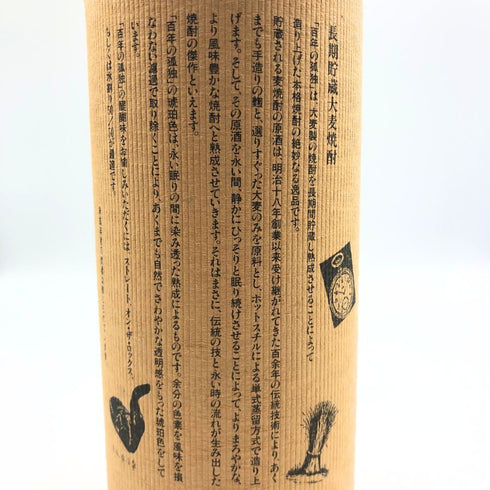 長期貯蔵大麦焼酎
「百年の孤独」は、大麦製の焼酎を長期間貯蔵し熟成させることによって
造り上げた本格焼酎の絶妙なる逸品です。
貯蔵される麦焼酎の原酒は、明治十八年創業以来受け継がれてきた百余年の伝統技術により、あく
までも手造りの麹と、選りすぐった大麦のみを原料とし、ポットスチルによる単式蒸留方式で造り上
げます。そして、その原酒を永い間、静かにひっそりと眠り続けさせることによって、よりまろやかな、
より風味豊かな焼酎へと熟成させていきます。それはまさに、伝統の技と永い時の流れが生み出した
焼酎の傑作といえます。
「百年の孤独」の琥珀色は、永い眠りの間に染み透った熟成によるものです。余分の色素を風味を損
なわない濾過で取り除くことにより、あくまでも自然でさわやかな透明感をもった琥珀色をして
います。
「百年の孤独」の醍醐味をお愉しみいただくには、ストレート、オン・ザ・ロックス、
もしくは水割り
が最適です。